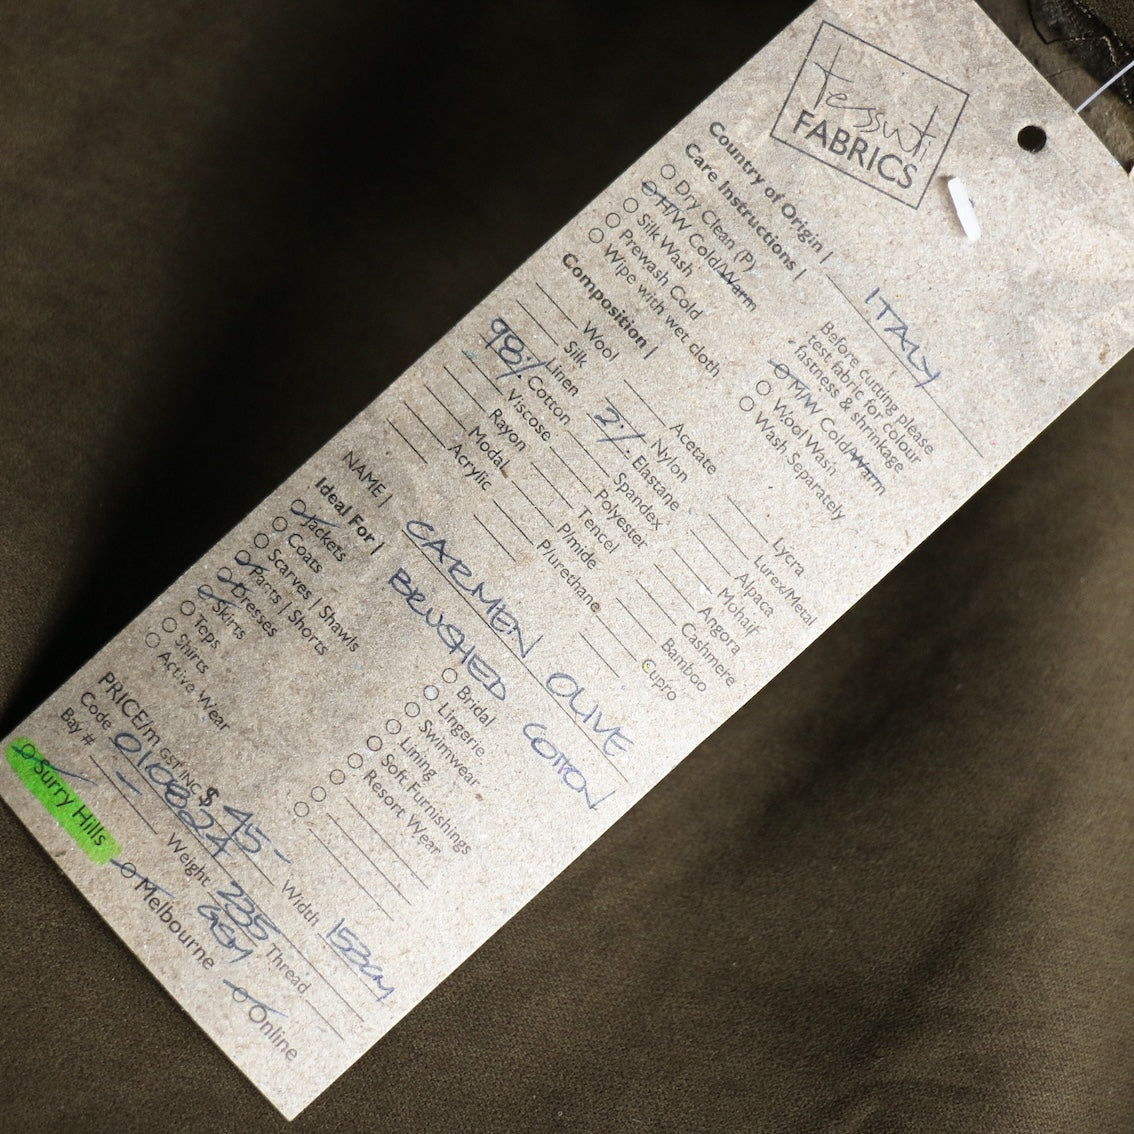 tessuti
FABRICS
Country of Origin | ITALY
Care Instructions |
Dry Clean (P)
H/W Cold/Warm
Silk Wash
Prewash Cold
Wipe with wet cloth
Before cutting please
test fabric for colour
fastness & shrinkage
M/W Cold/Warm
Wool Wash
Wash Separately
Composition |
Wool
Silk
Linen
98% Cotton
Viscose
Rayon
Modal
Acrylic
Acetate
Nylon
2% Elastane
Spandex
Polyester
Tencel
P/mide
P/urethane
Lycra
Lurex/Metal
Alpaca
Mohair
Angora
Cashmere
Bamboo
Cupro
NAME | CARMEN OLIVE
BRUSHED COTTON
Ideal For |
Jackets
Coats
Scarves | Shawls
Pants | Shorts
Dresses
Skirts
Tops
Shirts
Active Wear
Bridal
Lingerie
Swimwear
Lining
Soft Furnishings
Resort Wear
PRICE/m GST INC $ 45-
Width 153cm
Code 0108024
Weight 235 GSM
Thread
Bay # -
Surry Hills
Melbourne
Online